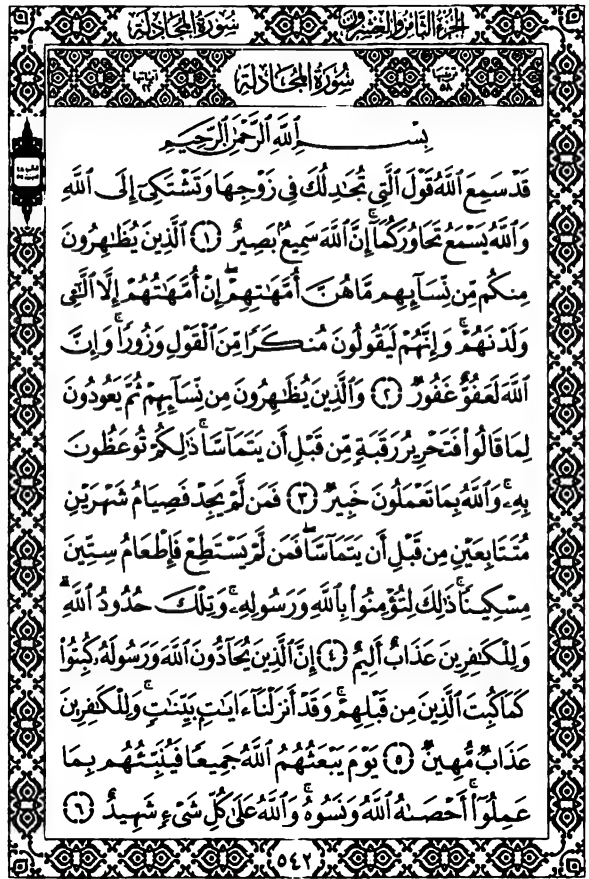 الجزء الثامن والعشرون سورة المجادلة
ترتيبها ٥٨ سُورَةُ المُجَادلَة آياتها ٢٢
بِسْمِ ٱللَّهِ ٱلرَّحْمَٰنِ ٱلرَّحِيمِ
قَدْ سَمِعَ ٱللَّهُ قَوْلَ ٱلَّتِى تُجَٰدِلُكَ فِى زَوْجِهَا وَتَشْتَكِىٓ إِلَى ٱللَّهِ
وَٱللَّهُ يَسْمَعُ تَحَاوُرَكُمَآ ۚ إِنَّ ٱللَّهَ سَمِيعٌۢ بَصِيرٌ ١ ٱلَّذِينَ يُظَٰهِرُونَ
مِنكُم مِّن نِّسَآئِهِم مَّا هُنَّ أُمَّهَٰتِهِمْ ۖ إِنْ أُمَّهَٰتُهُمْ إِلَّا ٱلَّٰٓـِٔى
وَلَدْنَهُمْ ۚ وَإِنَّهُمْ لَيَقُولُونَ مُنكَرًا مِّنَ ٱلْقَوْلِ وَزُورًا ۚ وَإِنَّ
ٱللَّهَ لَعَفُوٌّ غَفُورٌ ٢ وَٱلَّذِينَ يُظَٰهِرُونَ مِن نِّسَآئِهِمْ ثُمَّ يَعُودُونَ
لِمَا قَالُوا۟ فَتَحْرِيرُ رَقَبَةٍ مِّن قَبْلِ أَن يَتَمَآسَّا ۚ ذَٰلِكُمْ تُوعَظُونَ
بِهِۦ ۚ وَٱللَّهُ بِمَا تَعْمَلُونَ خَبِيرٌ ٣ فَمَن لَّمْ يَجِدْ فَصِيَامُ شَهْرَيْنِ
مُتَتَابِعَيْنِ مِن قَبْلِ أَن يَتَمَآسَّا ۖ فَمَن لَّمْ يَسْتَطِعْ فَإِطْعَامُ سِتِّينَ
مِسْكِينًا ۚ ذَٰلِكَ لِتُؤْمِنُوا۟ بِٱللَّهِ وَرَسُولِهِۦ ۚ وَتِلْكَ حُدُودُ ٱللَّهِ ۗ
وَلِلْكَٰفِرِينَ عَذَابٌ أَلِيمٌ ٤ إِنَّ ٱلَّذِينَ يُحَآدُّونَ ٱللَّهَ وَرَسُولَهُۥ كُبِتُوا۟
كَمَا كُبِتَ ٱلَّذِينَ مِن قَبْلِهِمْ ۚ وَقَدْ أَنزَلْنَآ ءَايَٰتٍۭ بَيِّنَٰتٍ ۚ وَلِلْكَٰفِرِينَ
عَذَابٌ مُّهِينٌ ٥ يَوْمَ يَبْعَثُهُمُ ٱللَّهُ جَمِيعًا فَيُنَبِّئُهُم بِمَا
عَمِلُوٓا۟ ۚ أَحْصَىٰهُ ٱللَّهُ وَنَسُوهُ ۚ وَٱللَّهُ عَلَىٰ كُلِّ شَىْءٍ شَهِيدٌ ٦
٥٤٢